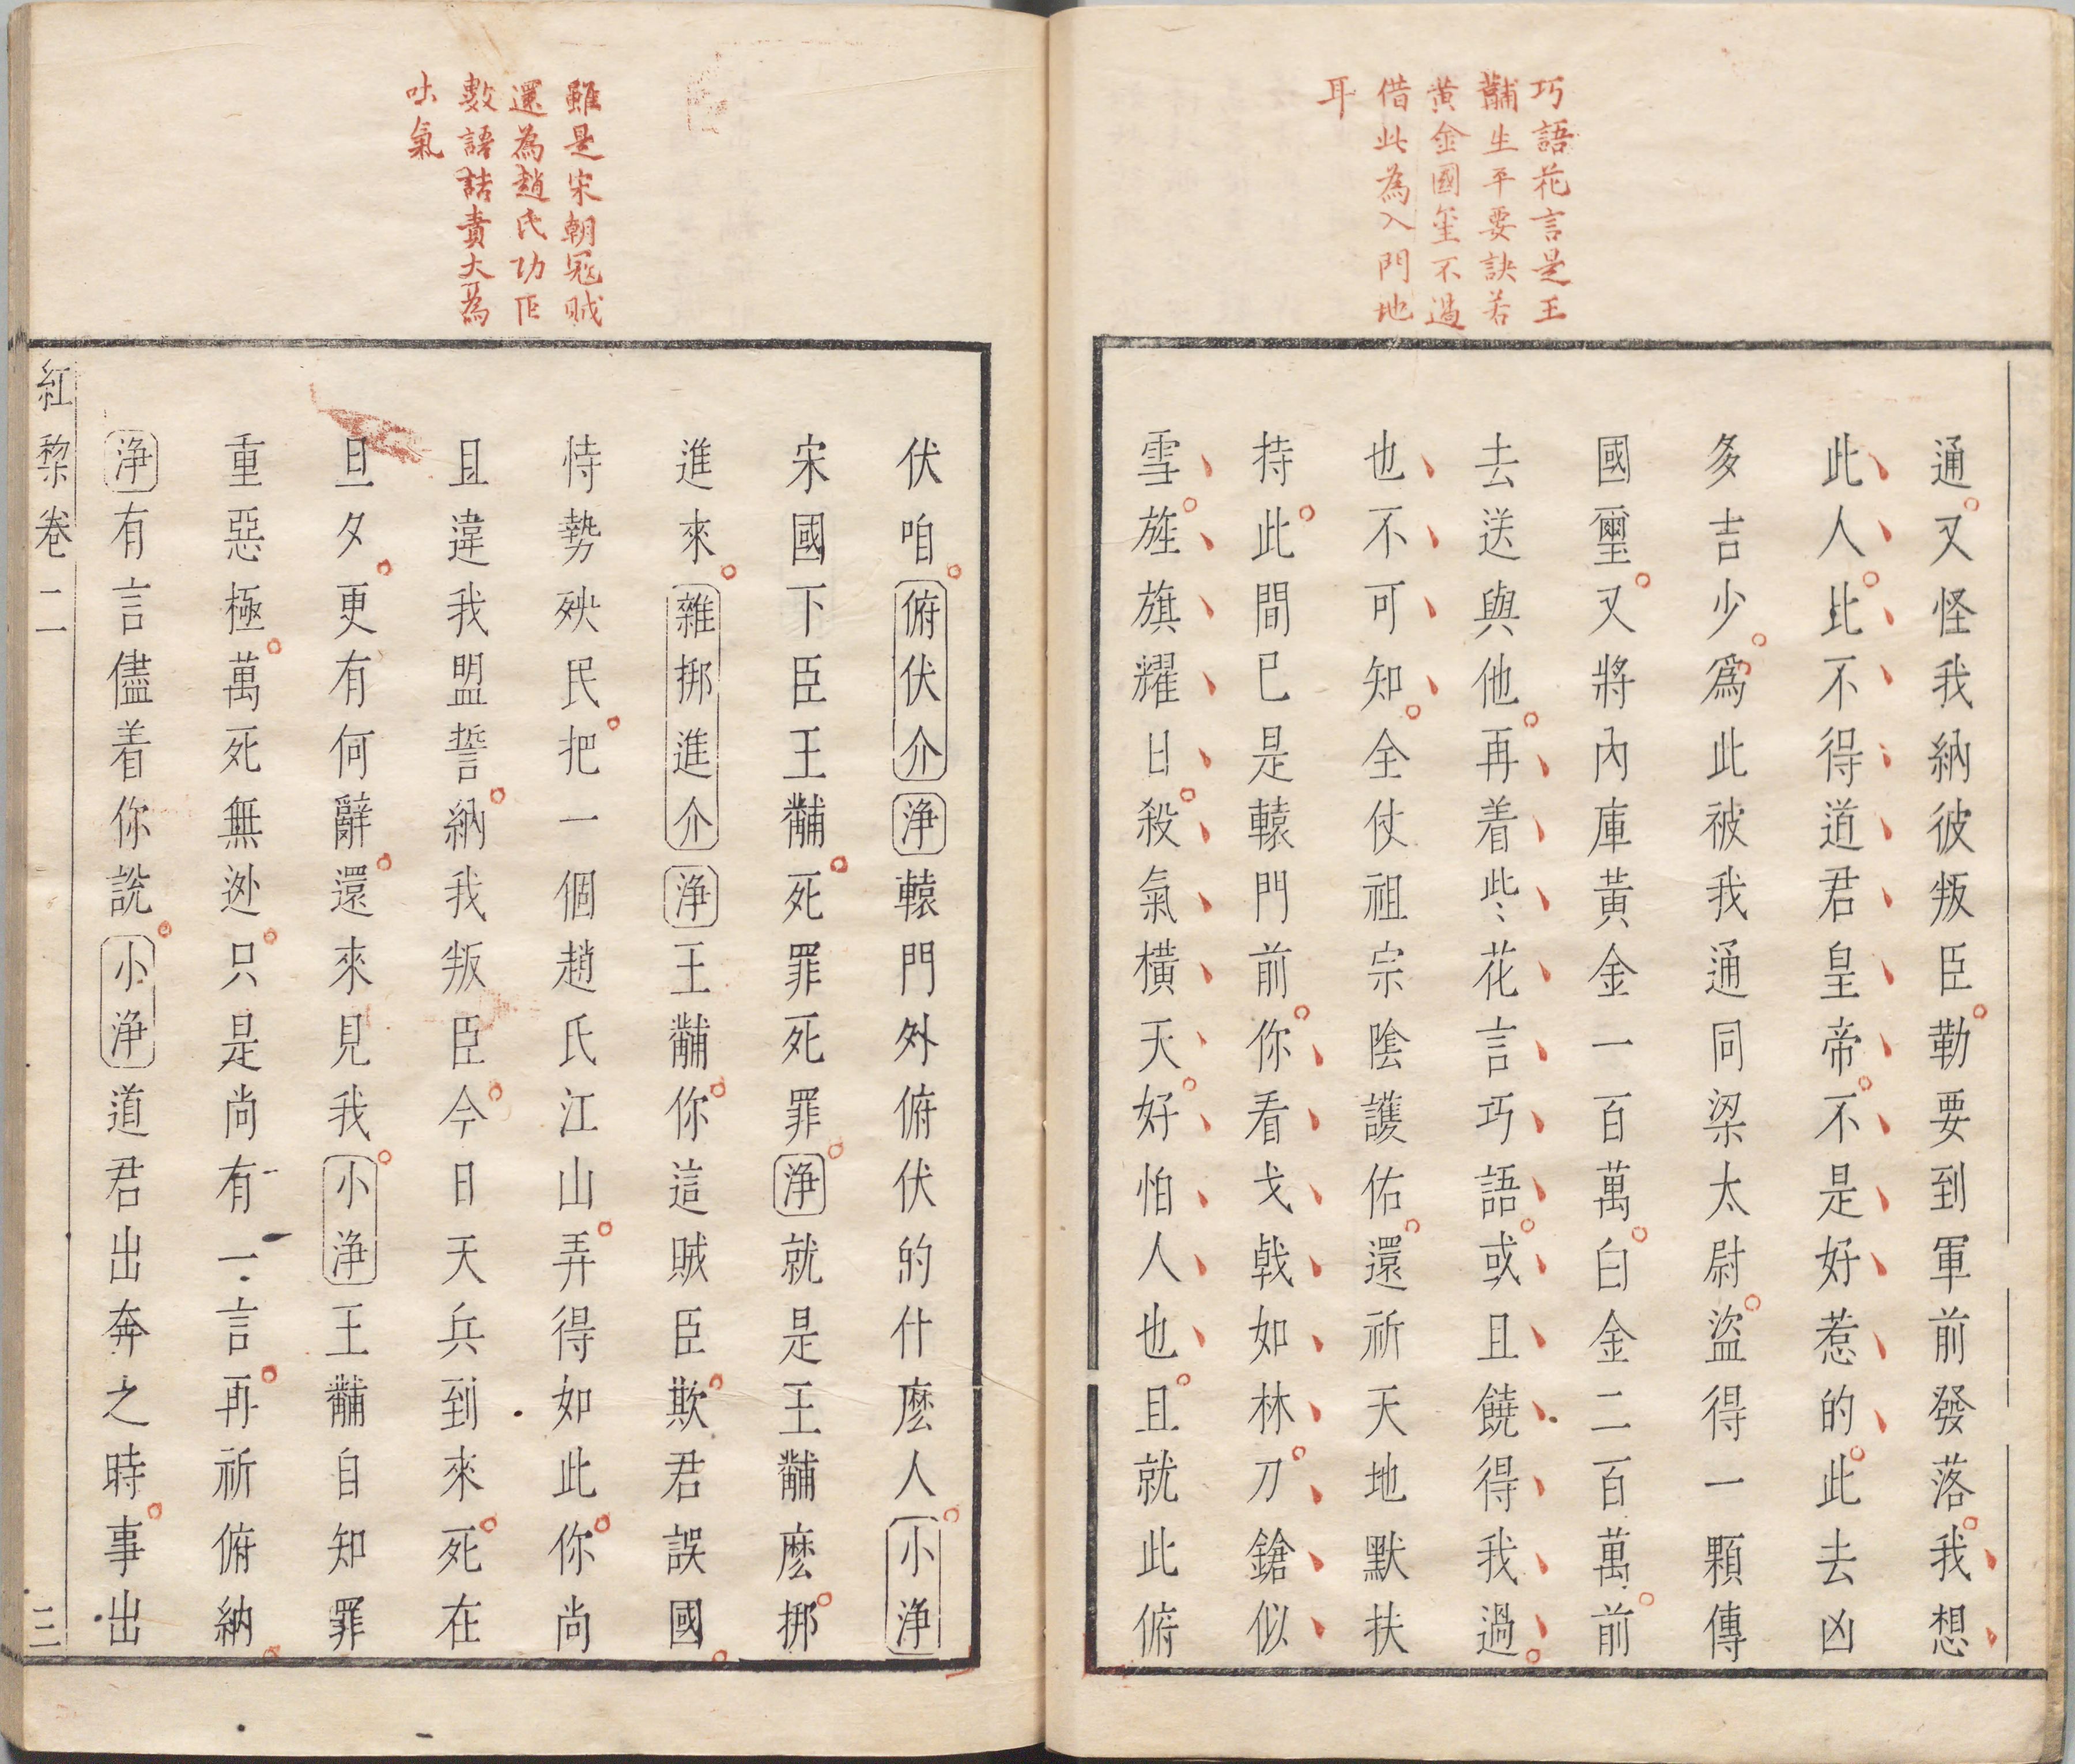 巧語花言是王
黼生平要訣若
黃金國璽不過
借此為入門地
耳
通又怪我納彼叛臣勒要到軍前發落我想
此人比不得道君皇帝不是好惹的此去凶
多吉少爲此被我通同梁太尉盜得一顆傳
國璽又將內庫黃金一百萬白金二百萬前
去送與他再着些花言巧語或且饒得我過
也不可知全仗祖宗陰護佑還祈天地默扶
持此間已是轅門前你看戈戟如林刀鎗似
雪旌旗耀日殺氣橫天好怕人也且就此俯
雖是宋朝冦賊
還為趙氏功臣
數語詰責大為
吐氣
伏咱俯伏介淨轅門外俯伏的什麽人小淨
宋國下臣王黼死罪死罪淨就是王黼麽挷
進來雜挷進介淨王黼你這賊臣欺君誤國
恃勢殃民把一個趙氏江山弄得如此你尚
且違我盟誓納我叛臣今日天兵到來死在
旦夕更有何辭還來見我小淨王黼自知罪
重惡極萬死無逃只是尚有一言再祈俯納
淨有言儘着你說小淨道君出奔之時事出
紅黎卷二
三